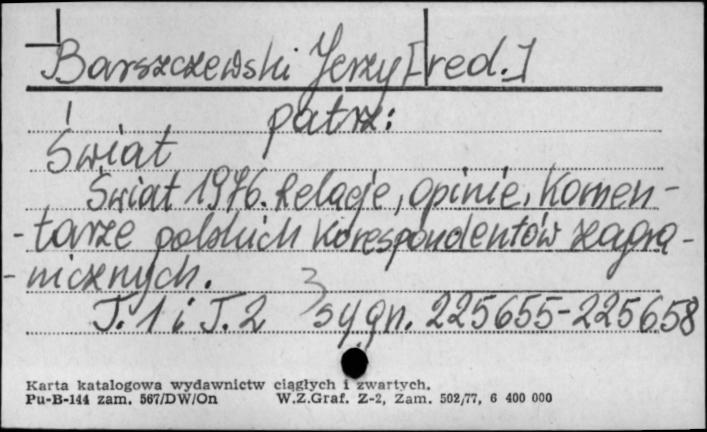 Barszczewski Jerzy [red.]
patrz:
Świat
Świat 1976. Relacje, opinie, komen-
-tarze polskich korespondentów zagra-
-nicznych.
T. 1 i T. 2 3 sygn. 225655-225658
Karta katalogowa wydawnictw ciągłych i zwartych.
Pu-B-144 zam. 567/DW/On W.Z.Graf. Z-2, Zam. 502/77, 6 400 000